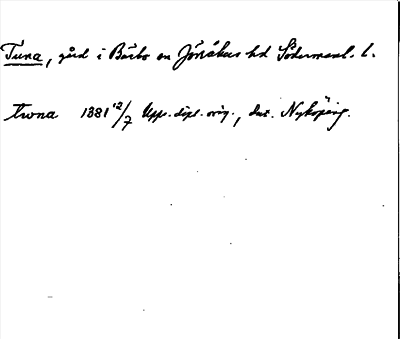 Tuna, gård i Bärbo sn Jönåkers hd Södermanl. l.
Twna 1381 12/7 Upps. dipl. orig., dat. Nyköping.